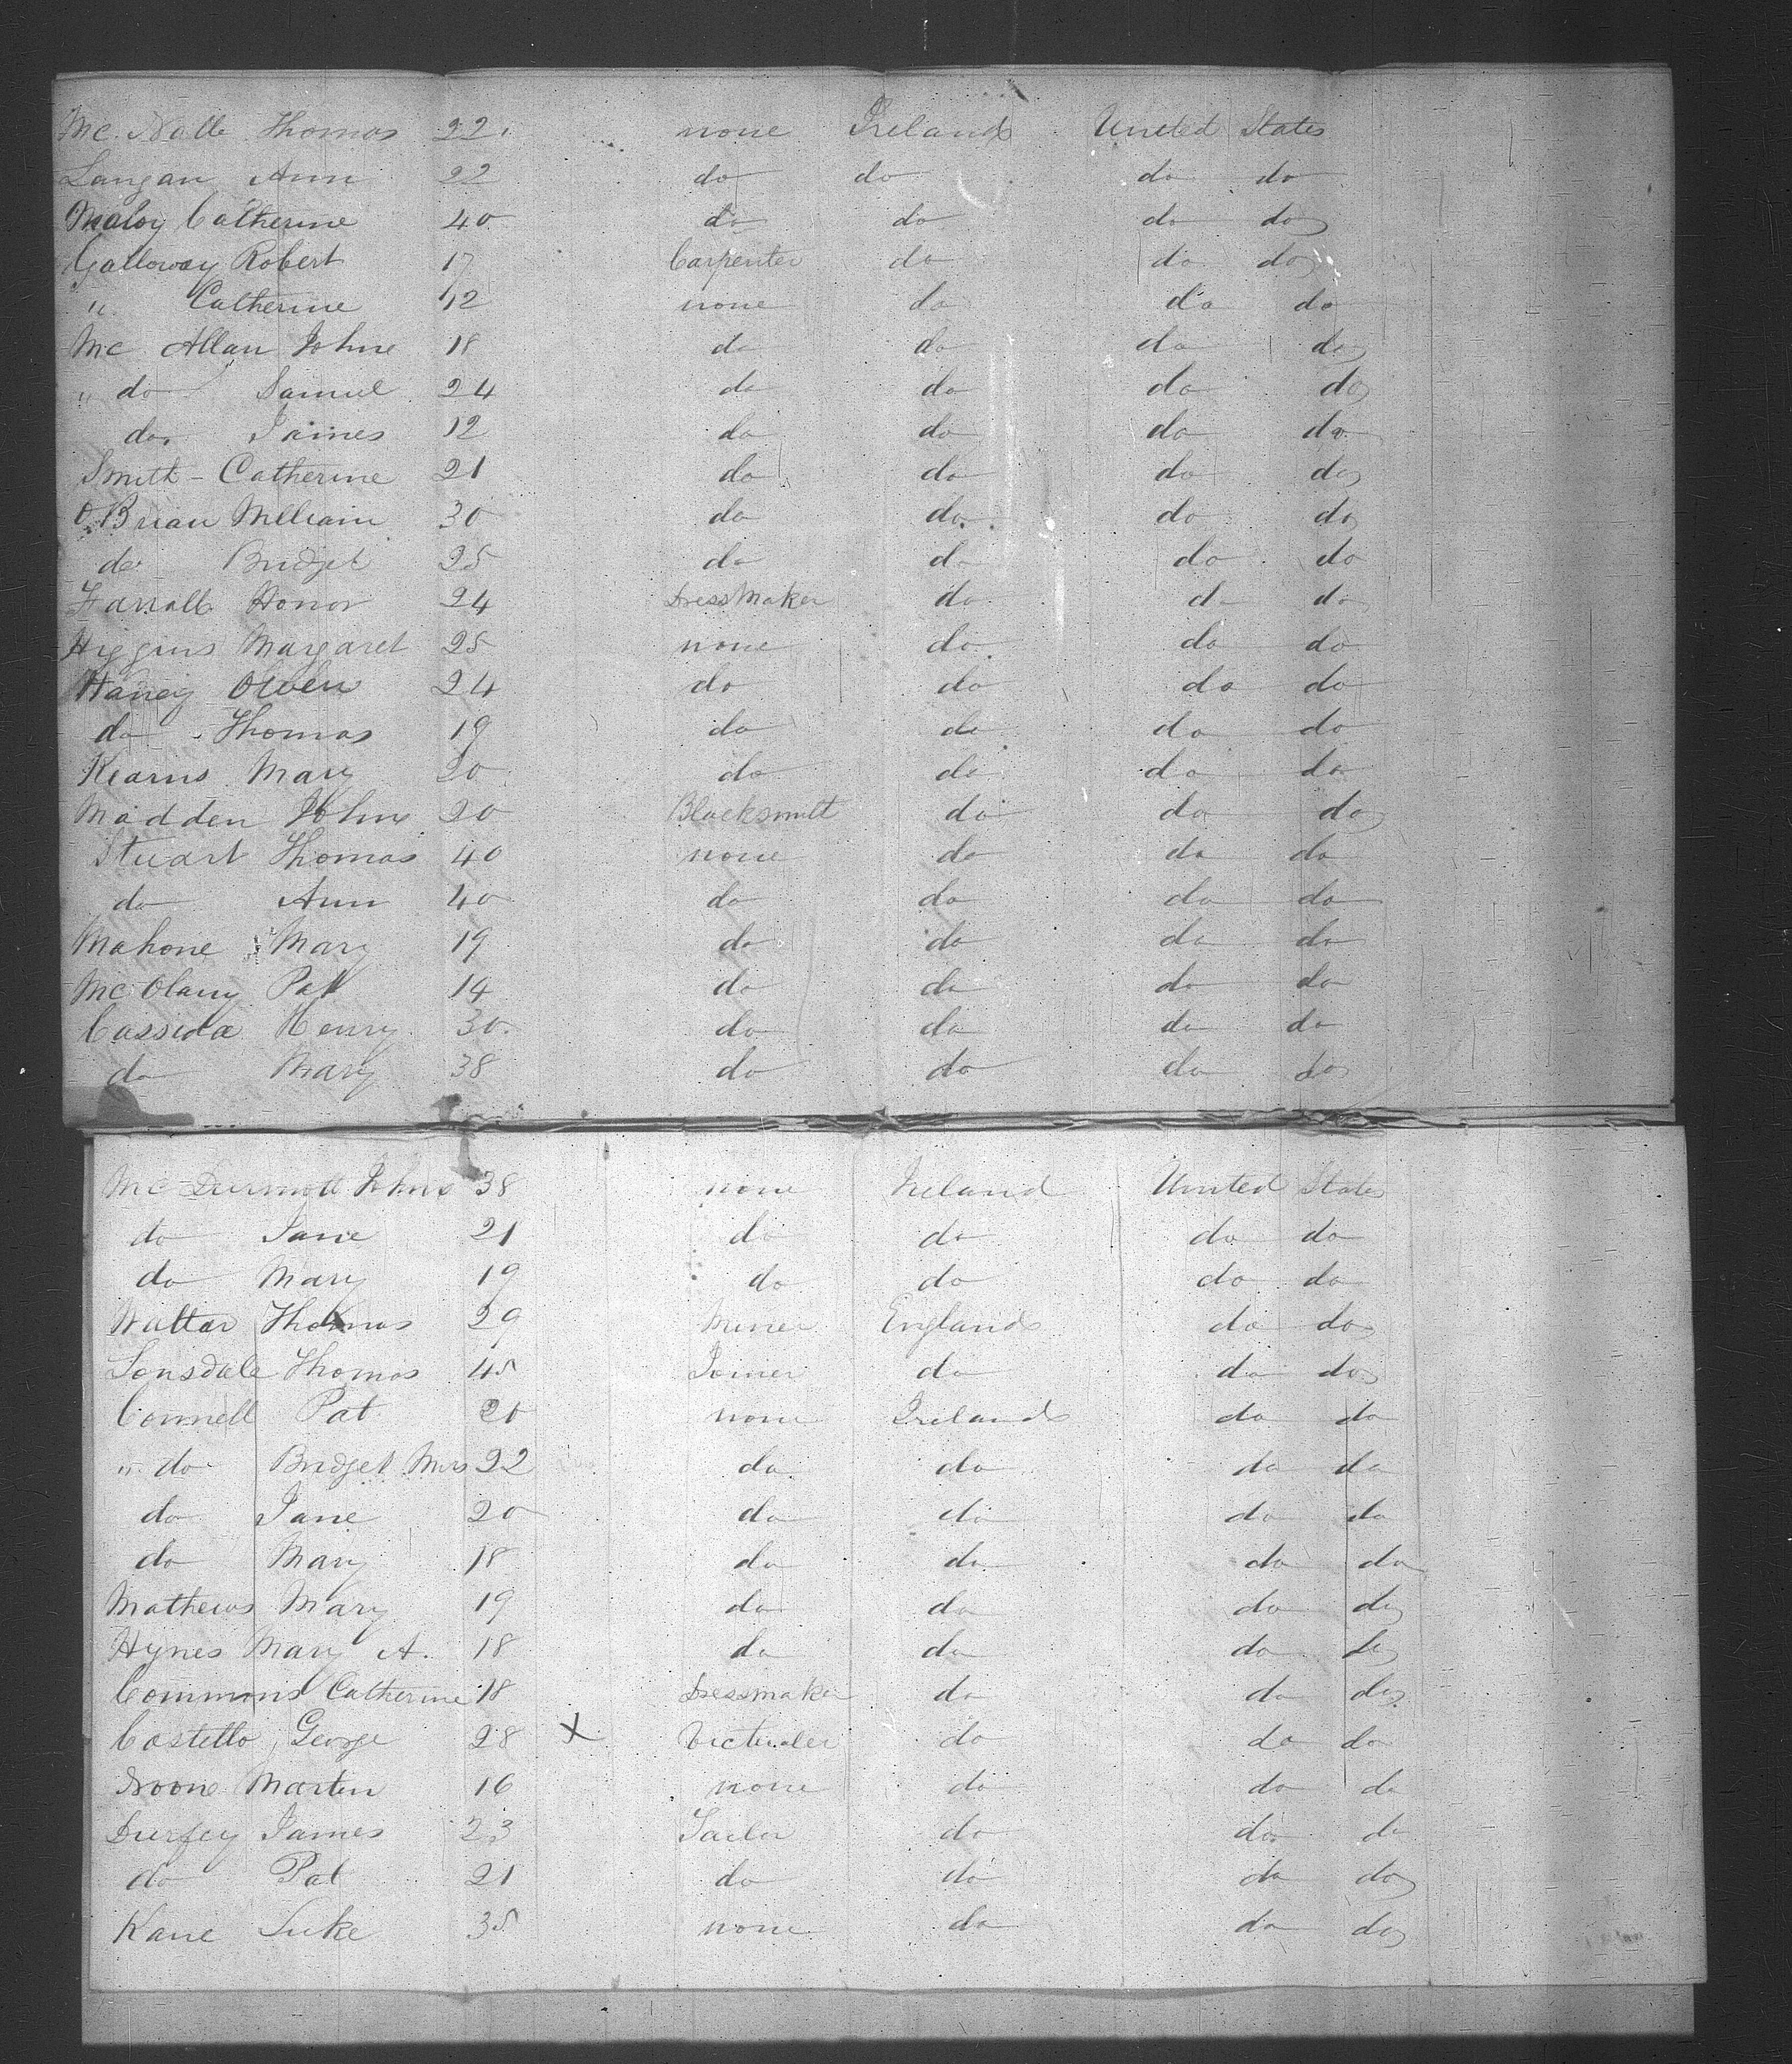 Mc. Nalle Thomas 22 none Ireland United States
Langan Ann 22 do do do do
Maloy Catherine 40 do do do do
Galloway Robert 17 Carpenter do do do
" Catherine 12 none do do do
Mc Allan John 18 do do do do
" do Samuel 24 do do do do
do James 12 do do do do
Smith - Catherine 21 do do do do
O Brian William 30 do do do do
do Bridget 25 do do do do
Farrall Honor 24 DressMaker do do do
Higgins Margaret 25 none do do do
Haney Owen 24 do do do do
do Thomas 19 do do do do
Kearns Mary 20 do do do do
Madden John 20 Blacksmitt do do do
Stuart Thomas 40 none do do do
do Ann 40 do do do do
Mahone Mary 19 do do do do
Mc Olany Pat 14 do do do do
Cassida Henry 30 do do do do
do Mary 38 do do do do
Mc Durmott John 38 none Ireland United States
do Jane 21 do do do do
do Mary 19 do do do do
Waltar Thomas 29 Miner England do do
Lonsdale Thomas 45 Joiner do do do
Connell Pat 20 none Ireland do do
" do Bridget Mrs 22 do do do do
do Jane 20 do do do do
do Mary 18 do do do do
Mathews Mary 19 do do do do
Hynes Mary A. 18 do do do do
Commons Catherine 18 Dressmaker do do do
Costello George 28 X Victualer do do do
Noone Martin 16 none do do do
Durfey James 23 Tailor do do do
do Pat 21 do do do do
Kane Luke 35 none do do do